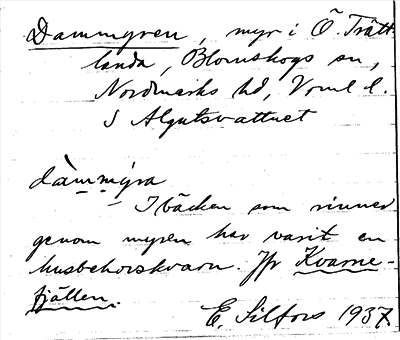 Dammyren, myr i Ö. Trätt-
landa, Blomskogs sn,
Nordmarks hd, Vrml l.
S Algutsvattnet
dàmmýra
I bäcken som rinner
genom myren har varit en
husbehovskvarn. Jfr Kvarne-
fjällen.
E. Silfors 1937.